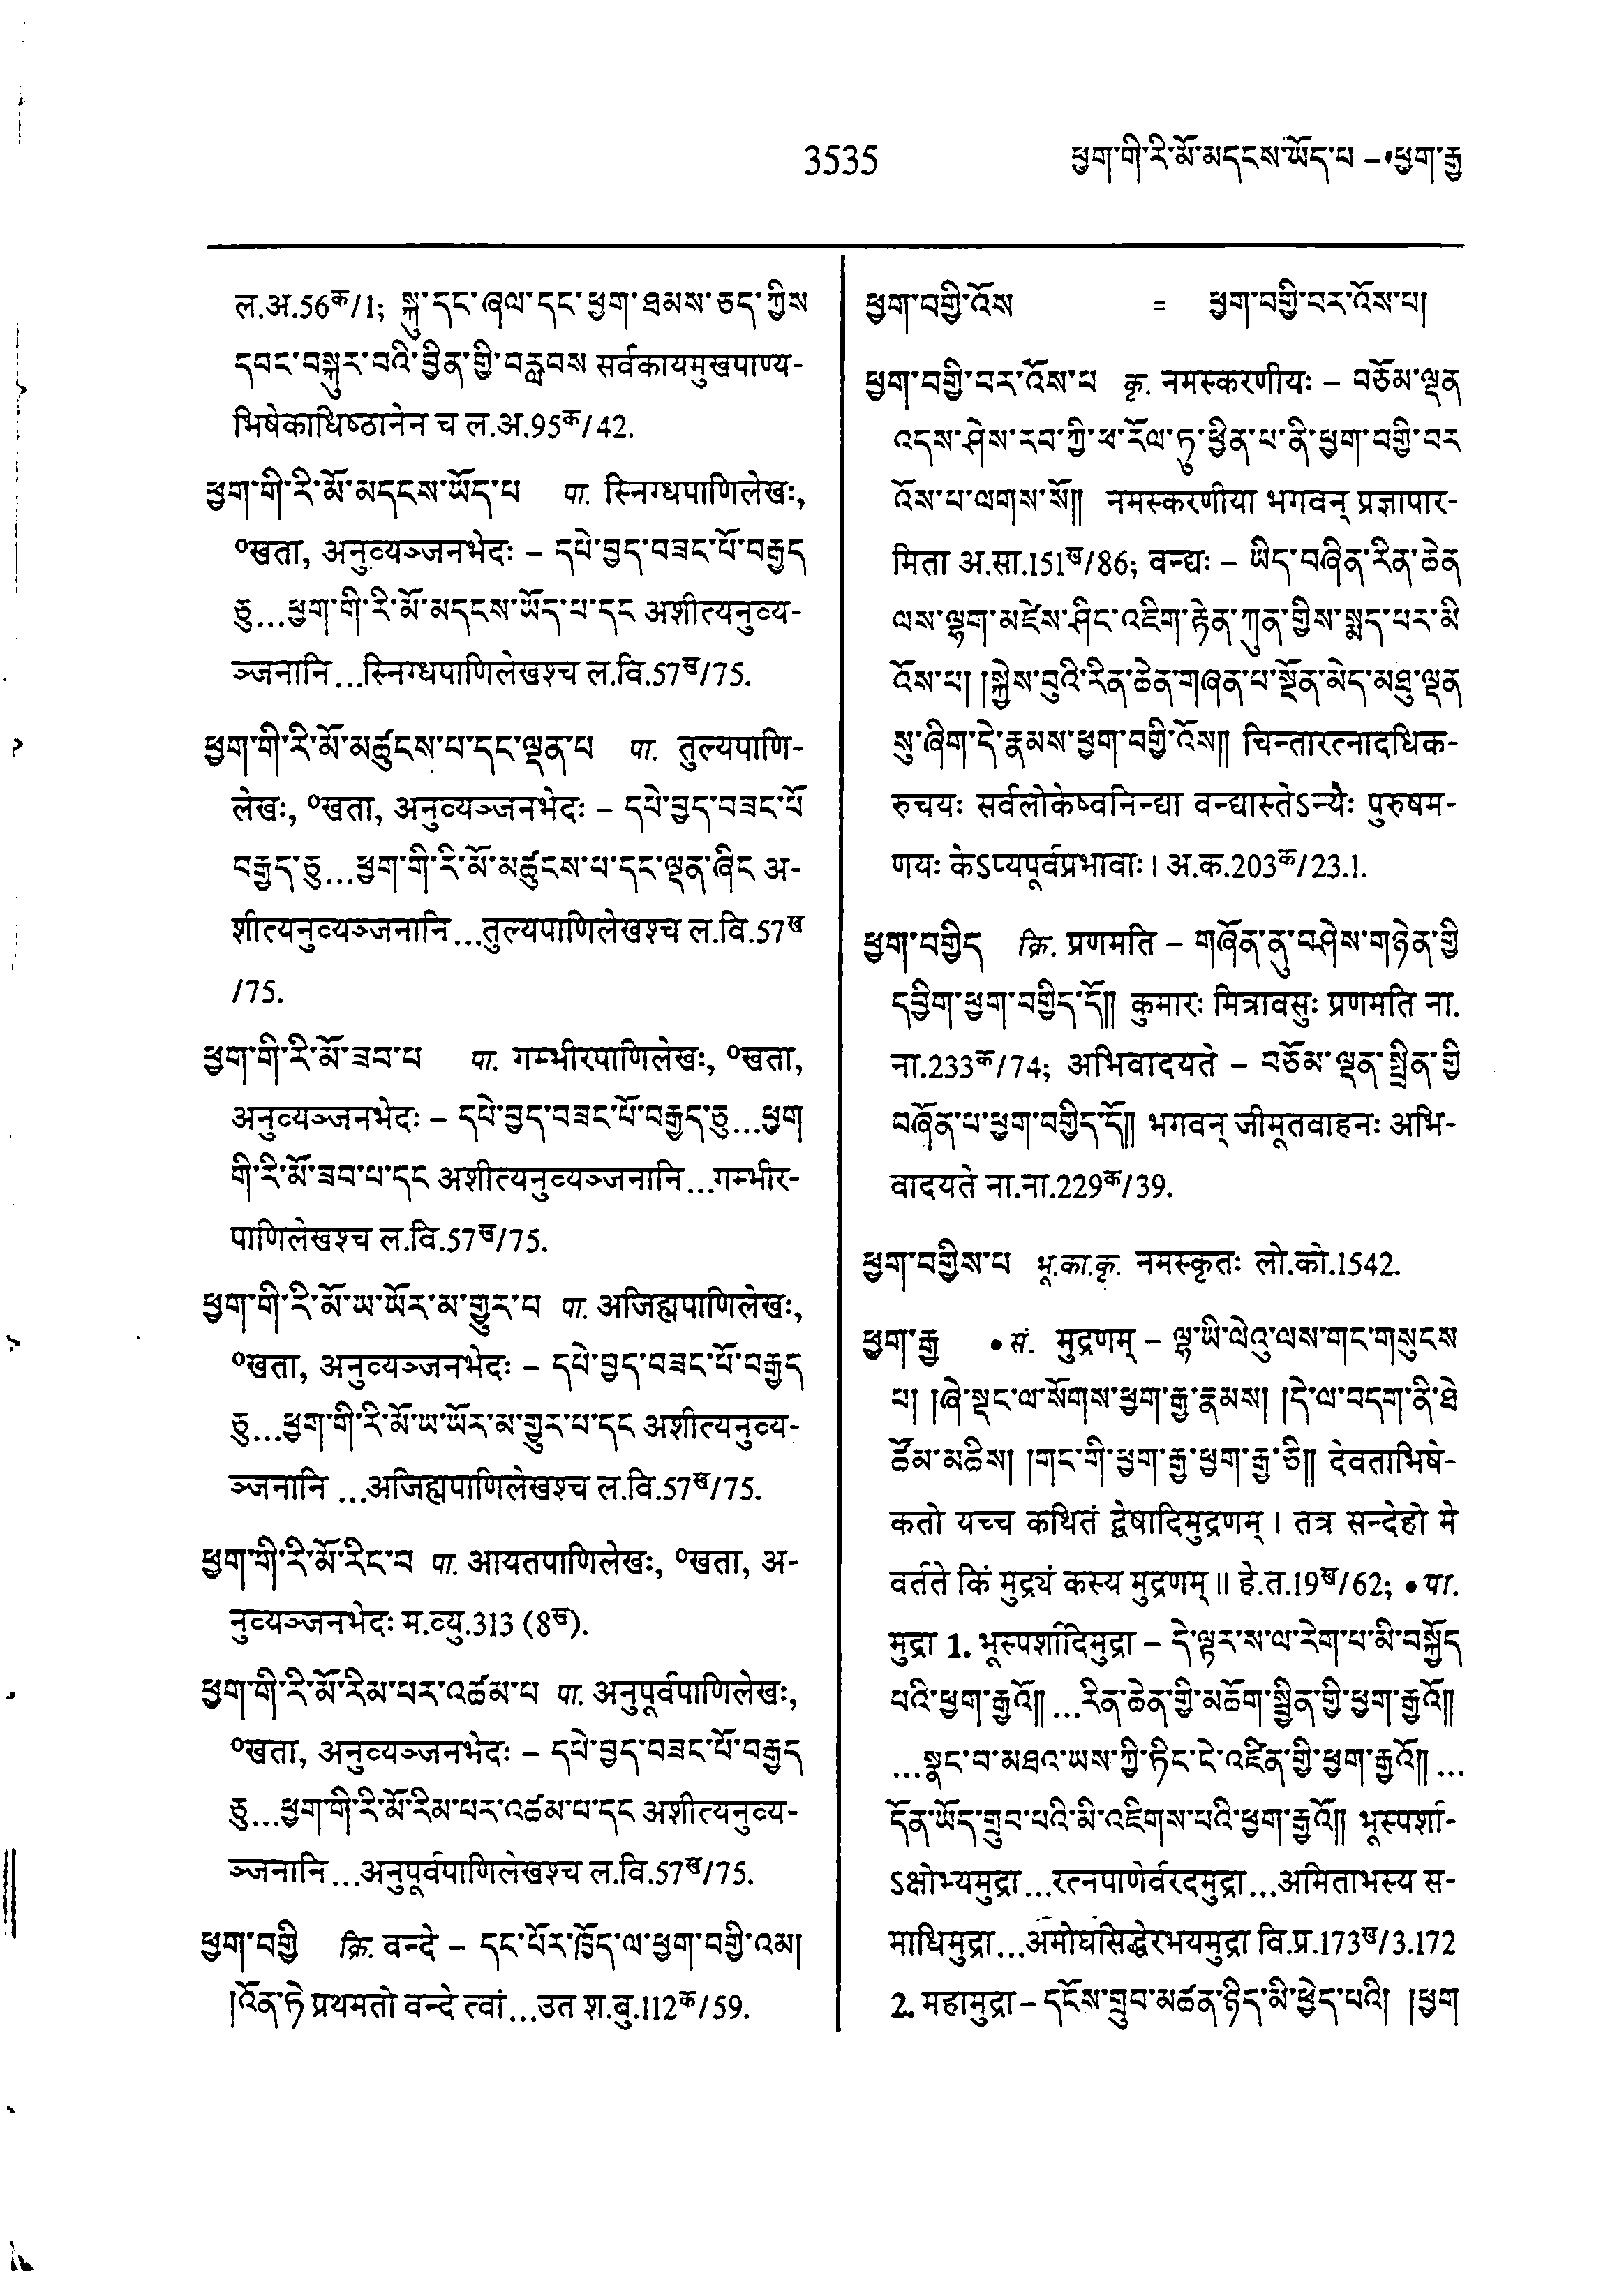 3535
ཕྱག་གི་རི་མོ་མདངས་ཡོད་པ – •ཕྱག་རྒྱ
ल.अ.56क/1; སྐུ་དང་ཞལ་དང་ཕྱག་ཐམས་ཅད་ཀྱིས
དབང་བསྐུར་བའི་བྱིན་གྱི་བརླབས सर्वकायमुखपाण्य-
भिषेकाधिष्ठानेन च ल.अ.95क/42.
ཕྱག་གི་རི་མོ་མདངས་ཡོད་པ पा. स्निग्धपाणिलेखः,
०खता, अनुव्यञ्जनभेदः – དཔེ་བྱད་བཟང་པོ་བརྒྱད
ཅུ...ཕྱག་གི་རི་མོ་མདངས་ཡོད་པ་དང अशीत्यनुव्य-
ञ्जनानि...स्निग्धपाणिलेखश्च ल.वि.57ख/75.
ཕྱག་གི་རི་མོ་མཚུངས་པ་དང་ལྡན་པ पा. तुल्यपाणि-
लेखः, ०खता, अनुव्यञ्जनभेदः – དཔེ་བྱད་བཟང་པོ
བརྒྱད་ཅུ...ཕྱག་གི་རི་མོ་མཚུངས་པ་དང་ལྡན་ཞིང अ-
शीत्यनुव्यञ्जनानि...तुल्यपाणिलेखश्च ल.वि.57ख
/75.
ཕྱག་གི་རི་མོ་ཟབ་པ पा. गम्भीरपाणिलेखः, ०खता,
अनुव्यञ्जनभेदः – དཔེ་བྱད་བཟང་པོ་བརྒྱད་ཅུ...ཕྱག
གི་རི་མོ་ཟབ་པ་དང अशीत्यनुव्यञ्जनानि...गम्भीर-
पाणिलेखश्च ल.वि.57ख/75.
ཕྱག་གི་རི་མོ་ཡ་ཡོར་མ་གྱུར་པ पा. अजिह्मपाणिलेखः,
०खता, अनुव्यञ्जनभेदः – དཔེ་བྱད་བཟང་པོ་བརྒྱད
ཅུ...ཕྱག་གི་རི་མོ་ཡ་ཡོར་མ་གྱུར་པ་དང अशीत्यनुव्य-
ञ्जनानि ...अजिह्मपाणिलेखश्च ल.वि.57ख/75.
ཕྱག་གི་རི་མོ་རིང་བ पा. आयतपाणिलेखः, ०खता, अ-
नुव्यञ्जनभेदः म.व्यु.313 (8ख).
ཕྱག་གི་རི་མོ་རིམ་པར་འཚམ་པ पा. अनुपूर्वपाणिलेखः,
०खता, अनुव्यञ्जनभेदः – དཔེ་བྱད་བཟང་པོ་བརྒྱད
ཅུ...ཕྱག་གི་རི་མོ་རིམ་པར་འཚམ་པ་དང अशीत्यनुव्य-
ञ्जनानि...अनुपूर्वपाणिलेखश्च ल.वि.57ख/75.
ཕྱག་བགྱི क्रि. वन्दे – དང་པོར་ཁྱོད་ལ་ཕྱག་བགྱི་འམ།
།འོན་ཏེ प्रथमतो वन्दे त्वां...उत श.बु.112क/59.
ཕྱག་བགྱི་འོས = ཕྱག་བགྱི་བར་འོས་པ།
ཕྱག་བགྱི་བར་འོས་པ कृ. नमस्करणीयः – བཅོམ་ལྡན
འདས་ཤེས་རབ་ཀྱི་ཕ་རོལ་ཏུ་ཕྱིན་པ་ནི་ཕྱག་བགྱི་བར
འོས་པ་ལགས་སོ༎ नमस्करणीया भगवन् प्रज्ञापार-
मिता अ.सा.151ख/86; वन्द्यः – ཡིད་བཞིན་རིན་ཆེན
ལས་ལྷག་མཛེས་ཤིང་འཇིག་རྟེན་ཀུན་གྱིས་སྨད་པར་མི
འོས་པ། །སྐྱེས་བུའི་རིན་ཆེན་གཞན་པ་སྔོན་མེད་མཐུ་ལྡན
སུ་ཞིག་དེ་རྣམས་ཕྱག་བགྱི་འོས༎ चिन्तारत्नादधिक-
रुचयः सर्वलोकेष्वनिन्द्या वन्द्यास्तेऽन्यैः पुरुषम-
णयः केऽप्यपूर्वप्रभावाः। अ.क.203क/23.1.
ཕྱག་བགྱིད क्रि. प्रणमति – གཞོན་ནུ་བཤེས་གཉེན་གྱི
དབྱིག་ཕྱག་བགྱིད་དོ༎ कुमारः मित्रावसुः प्रणमति ना.
ना.233क/74; अभिवादयते – བཅོམ་ལྡན་སྤྲིན་གྱི
བཞོན་པ་ཕྱག་བགྱིད་དོ༎ भगवन् जीमूतवाहनः अभि-
वादयते ना.ना.229क/39.
ཕྱག་བགྱིས་པ भू.का.कृ. नमस्कृतः लो.को.1542.
ཕྱག་རྒྱ • सं. मुद्रणम् – ལྷ་ཡི་ལེའུ་ལས་གང་གསུངས
པ། །ཞེ་སྡང་ལ་སོགས་ཕྱག་རྒྱ་རྣམས། །དེ་ལ་བདག་ནི་ཐེ
ཚོམ་མཆིས། །གང་གི་ཕྱག་རྒྱ་ཕྱག་རྒྱ་ཅི༎ देवताभिषे-
कतो यच्च कथितं द्वेषादिमुद्रणम्। तत्र सन्देहो मे
वर्तते किं मुद्र्यं कस्य मुद्रणम्॥ हे.त.19ख/62; • पा.
मुद्रा 1. भूस्पर्शादिमुद्रा – དེ་ལྟར་ས་ལ་རེག་པ་མི་བསྐྱོད
པའི་ཕྱག་རྒྱའོ༎ ...རིན་ཆེན་གྱི་མཆོག་སྦྱིན་གྱི་ཕྱག་རྒྱའོ༎
...སྣང་བ་མཐའ་ཡས་ཀྱི་ཏིང་ངེ་འཛིན་གྱི་ཕྱག་རྒྱའོ༎ ...
དོན་ཡོད་གྲུབ་པའི་མི་འཇིགས་པའི་ཕྱག་རྒྱའོ༎ भूस्पर्शा-
ऽक्षोभ्यमुद्रा...रत्नपाणेर्वरदमुद्रा...अमिताभस्य स-
माधिमुद्रा...अमोघसिद्धेरभयमुद्रा वि.प्र.173ख/3.172
2. महामुद्रा – དངོས་གྲུབ་མཚན་ཉིད་མི་ཕྱེད་པའི། །ཕྱག